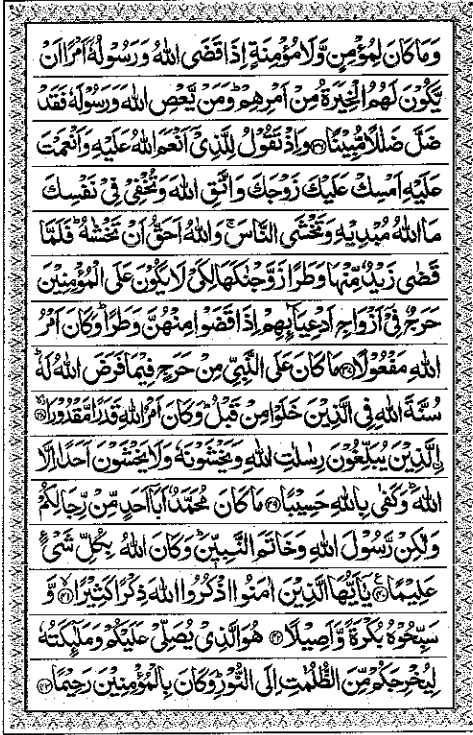 وَمَا كَانَ لِمُؤْمِنٍ وَّلَا مُؤْمِنَةٍ اِذَا قَضَى اللّٰهُ وَرَسُوْلُهٗٓ اَمْرًا اَنْ
يَّكُوْنَ لَهُمُ الْخِيَرَةُ مِنْ اَمْرِهِمْ ؕ وَمَنْ يَّعْصِ اللّٰهَ وَرَسُوْلَهٗ فَقَدْ
ضَلَّ ضَلٰلًا مُّبِيْنًا ﴿۳۶﴾ وَاِذْ تَقُوْلُ لِلَّذِيْٓ اَنْعَمَ اللّٰهُ عَلَيْهِ وَاَنْعَمْتَ
عَلَيْهِ اَمْسِكْ عَلَيْكَ زَوْجَكَ وَاتَّقِ اللّٰهَ وَتُخْفِيْ فِيْ نَفْسِكَ
مَا اللّٰهُ مُبْدِيْهِ وَتَخْشَى النَّاسَ ۚ وَاللّٰهُ اَحَقُّ اَنْ تَخْشٰىهُ ؕ فَلَمَّا
قَضٰى زَيْدٌ مِّنْهَا وَطَرًا زَوَّجْنٰكَهَا لِكَيْ لَا يَكُوْنَ عَلَى الْمُؤْمِنِيْنَ
حَرَجٌ فِيْٓ اَزْوَاجِ اَدْعِيَآئِهِمْ اِذَا قَضَوْا مِنْهُنَّ وَطَرًا ؕ وَكَانَ اَمْرُ
اللّٰهِ مَفْعُوْلًا ﴿۳۷﴾ مَا كَانَ عَلَى النَّبِيِّ مِنْ حَرَجٍ فِيْمَا فَرَضَ اللّٰهُ لَهٗ ؕ
سُنَّةَ اللّٰهِ فِي الَّذِيْنَ خَلَوْا مِنْ قَبْلُ ؕ وَكَانَ اَمْرُ اللّٰهِ قَدَرًا مَّقْدُوْرًا ﴿۳۸﴾
الَّذِيْنَ يُبَلِّغُوْنَ رِسٰلٰتِ اللّٰهِ وَيَخْشَوْنَهٗ وَلَا يَخْشَوْنَ اَحَدًا اِلَّا
اللّٰهَ ؕ وَكَفٰى بِاللّٰهِ حَسِيْبًا ﴿۳۹﴾ مَا كَانَ مُحَمَّدٌ اَبَآ اَحَدٍ مِّنْ رِّجَالِكُمْ
وَلٰكِنْ رَّسُوْلَ اللّٰهِ وَخَاتَمَ النَّبِيّٖنَ ؕ وَكَانَ اللّٰهُ بِكُلِّ شَيْءٍ
عَلِيْمًا ﴿۴۰﴾ يٰٓاَيُّهَا الَّذِيْنَ اٰمَنُوا اذْكُرُوا اللّٰهَ ذِكْرًا كَثِيْرًا ﴿۴۱﴾ وَّ
سَبِّحُوْهُ بُكْرَةً وَّاَصِيْلًا ﴿۴۲﴾ هُوَ الَّذِيْ يُصَلِّيْ عَلَيْكُمْ وَمَلٰٓئِكَتُهٗ
لِيُخْرِجَكُمْ مِّنَ الظُّلُمٰتِ اِلَى النُّوْرِ ؕ وَكَانَ بِالْمُؤْمِنِيْنَ رَحِيْمًا ﴿۴۳﴾